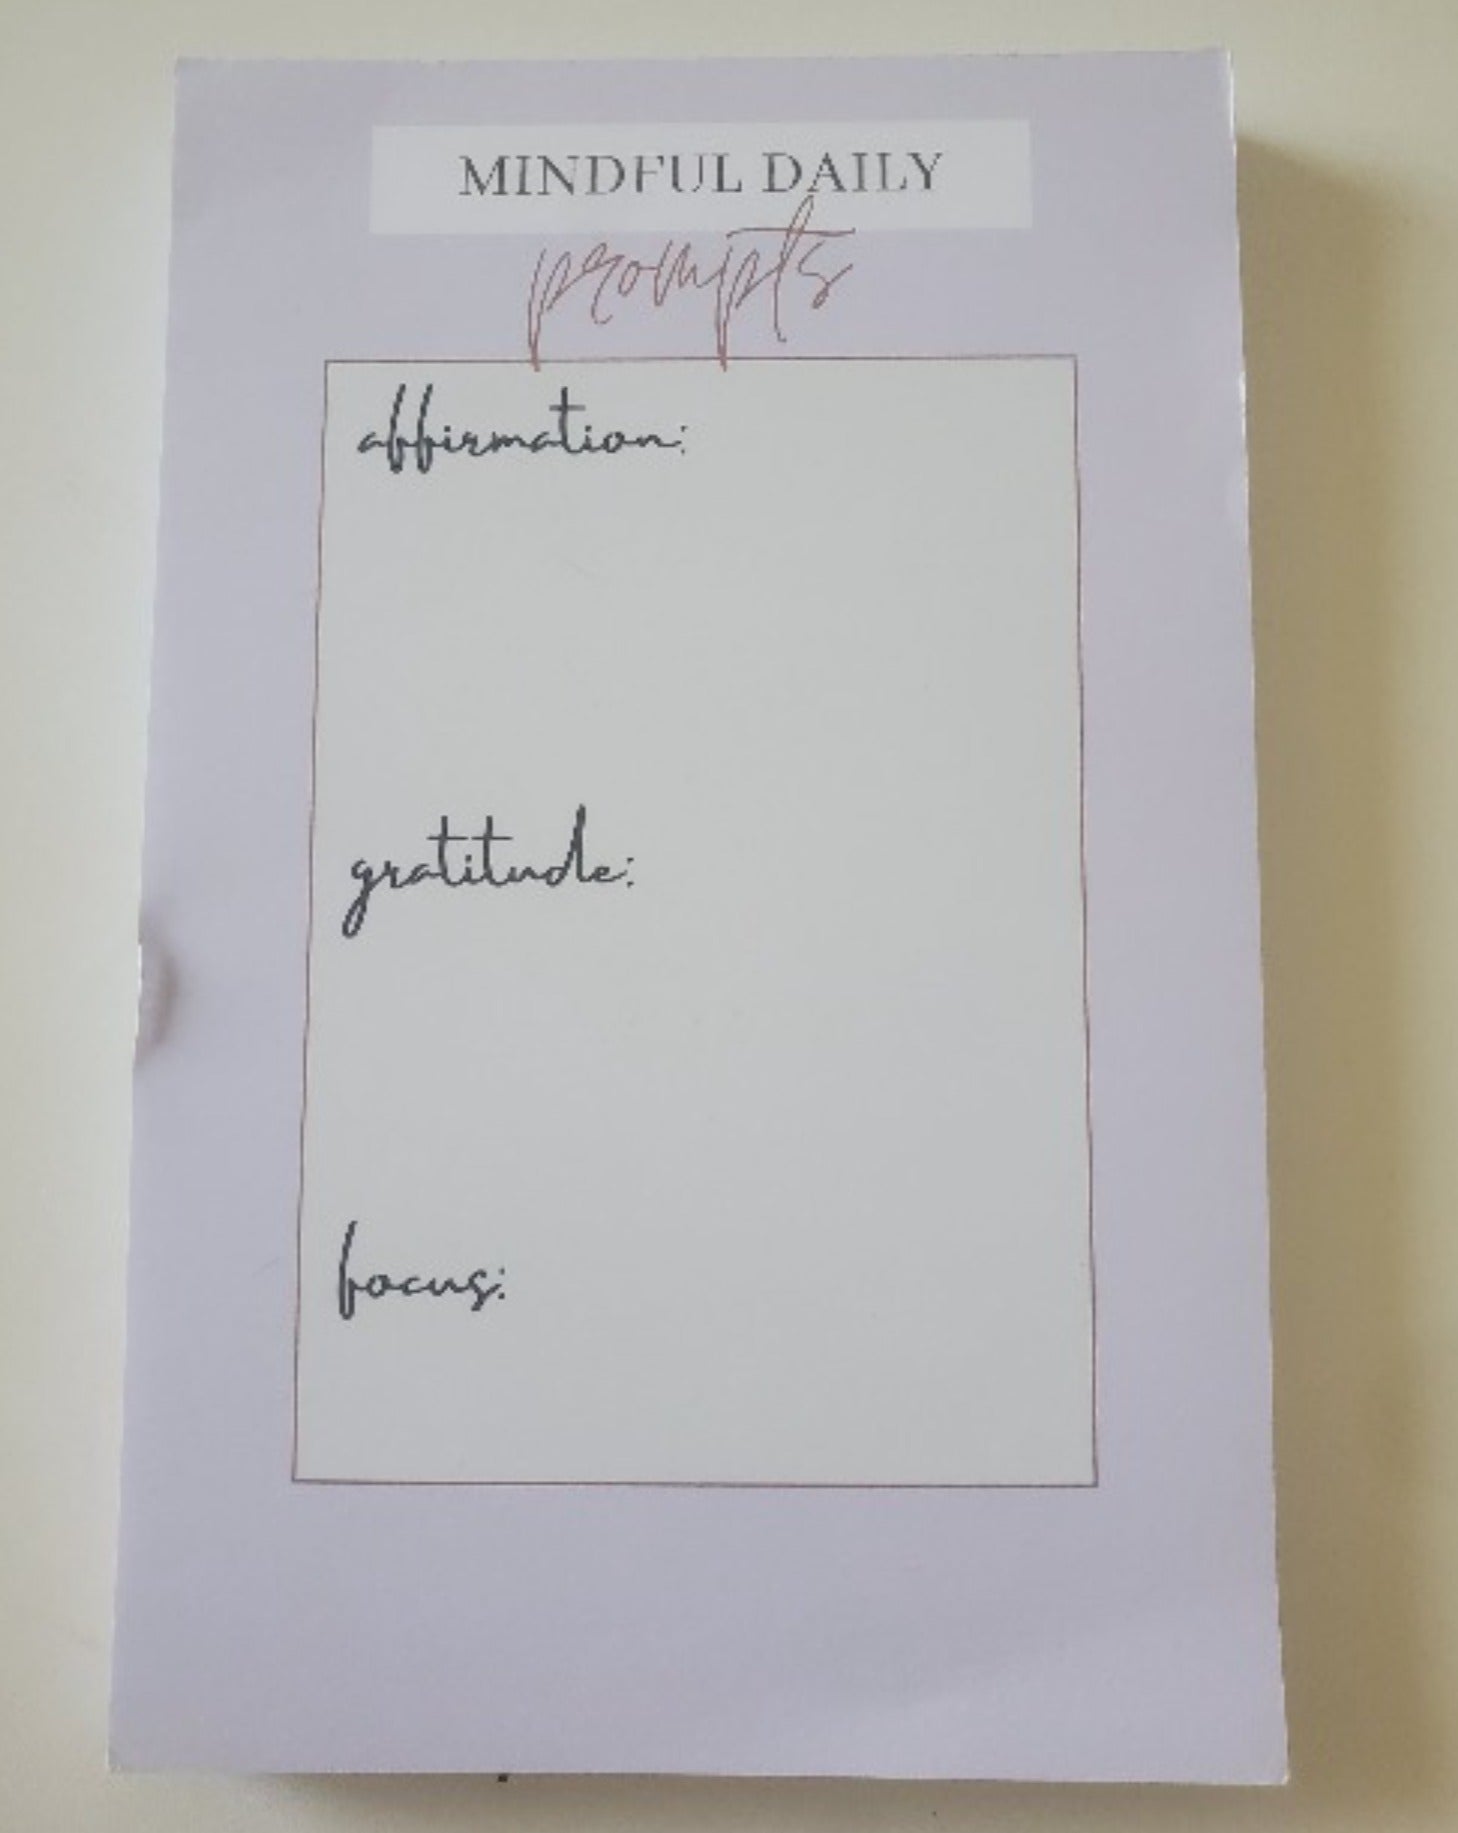 MINDFUL DAILY
prompts
affirmation:
gratitude:
focus: